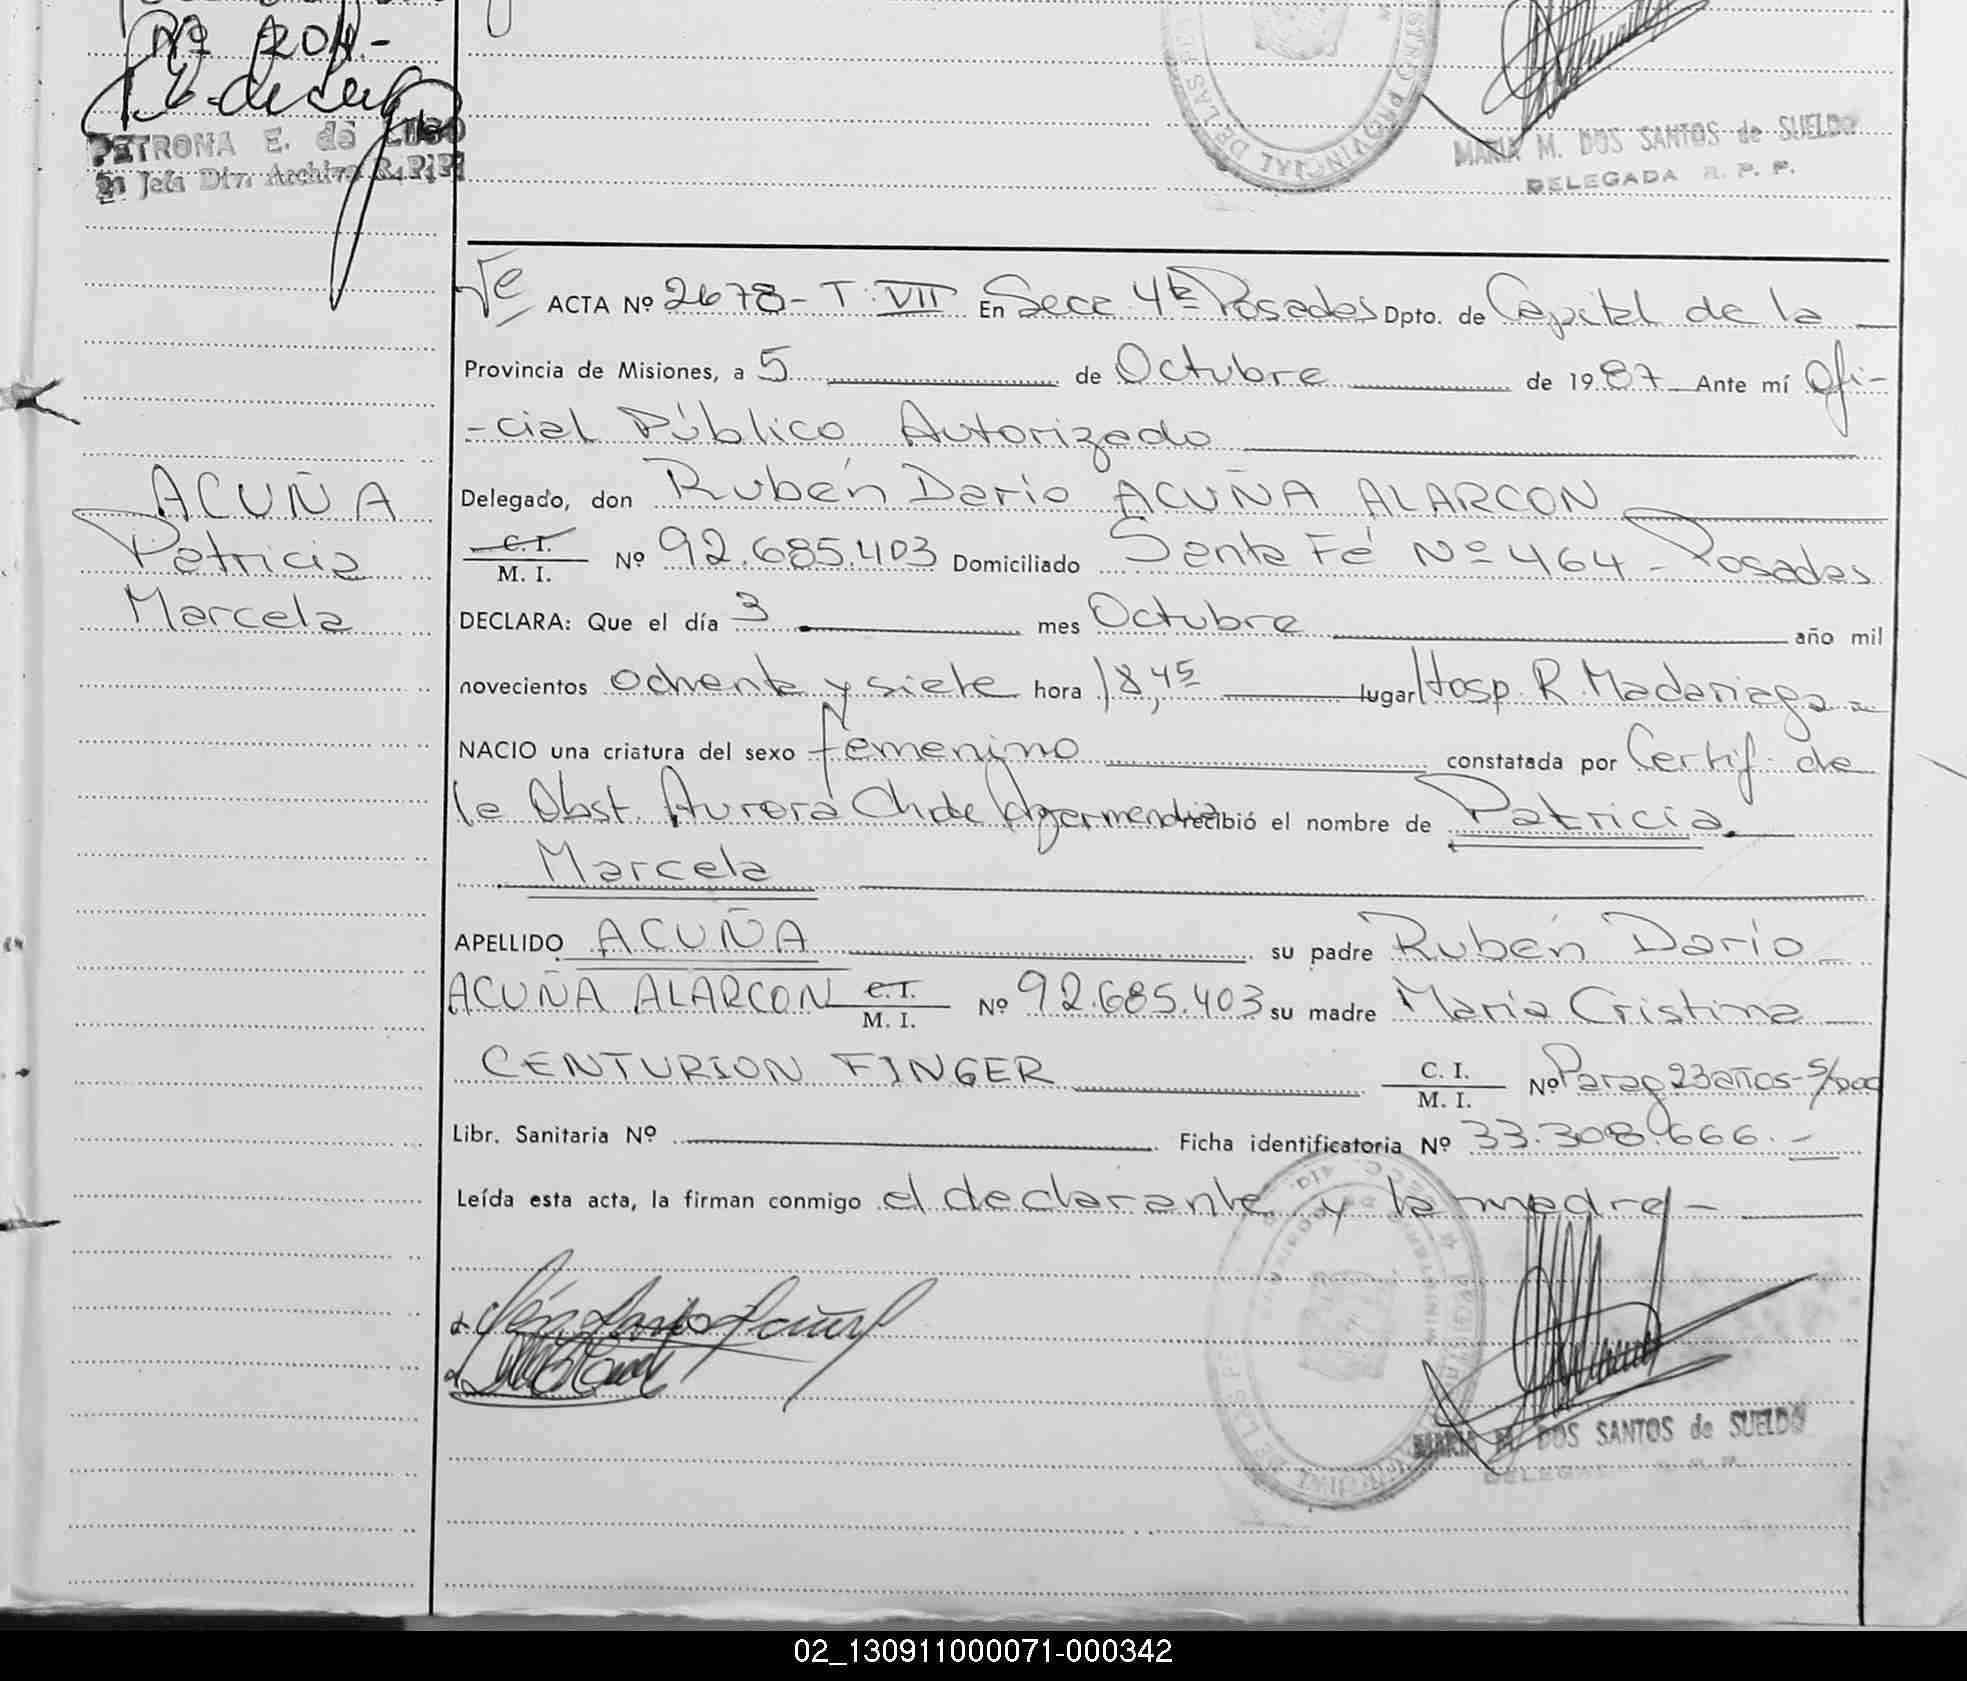 PETRONA E. de LUGO
Jefa Div. Archivo R.P.P.
MARIA M. DOS SANTOS de SUELDO
DELEGADA R. P. P.
ACTA Nº 2678 - T: VII En Secc 4ta Posadas Dpto. de Capital de la
Provincia de Misiones, a 5 de Octubre de 1987 Ante mí Ofi-
-cial Público Autorizado
ACUÑA
Patricia
Marcela
Delegado, don Rubén Darío ACUÑA ALARCON
C. I.
M. I. Nº 92.685.403 Domiciliado Santa Fé Nº 464 - Posadas
DECLARA: Que el día 3 mes Octubre año mil
novecientos ochenta y siete hora 18,45 lugar Hosp. R. Madariaga
NACIO una criatura del sexo femenino constatada por Certif. de
la Obst. Aurora Ch de Agermendia recibió el nombre de Patricia
Marcela
APELLIDO ACUÑA su padre Rubén Darío
ACUÑA ALARCON C. I. M. I. Nº 92.685.403 su madre María Cristina
CENTURION FINGER C. I. M. I. Nº Parag 23 años - s/doc
Libr. Sanitaria Nº Ficha identificatoria Nº 33.308.666.-
Leída esta acta, la firman conmigo el declarante y la madre -
MARIA M. DOS SANTOS de SUELDO
DELEGADA R. P. P.
02_130911000071-000342